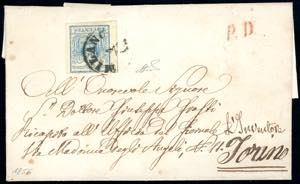 MILANO
P.D.
All' Onorevole Signore
Dottore Giuseppe
Recapito all' Ufficio del Giornale L'Inventore
Via Madonna degli Angeli, N. 11.
Torino
1856